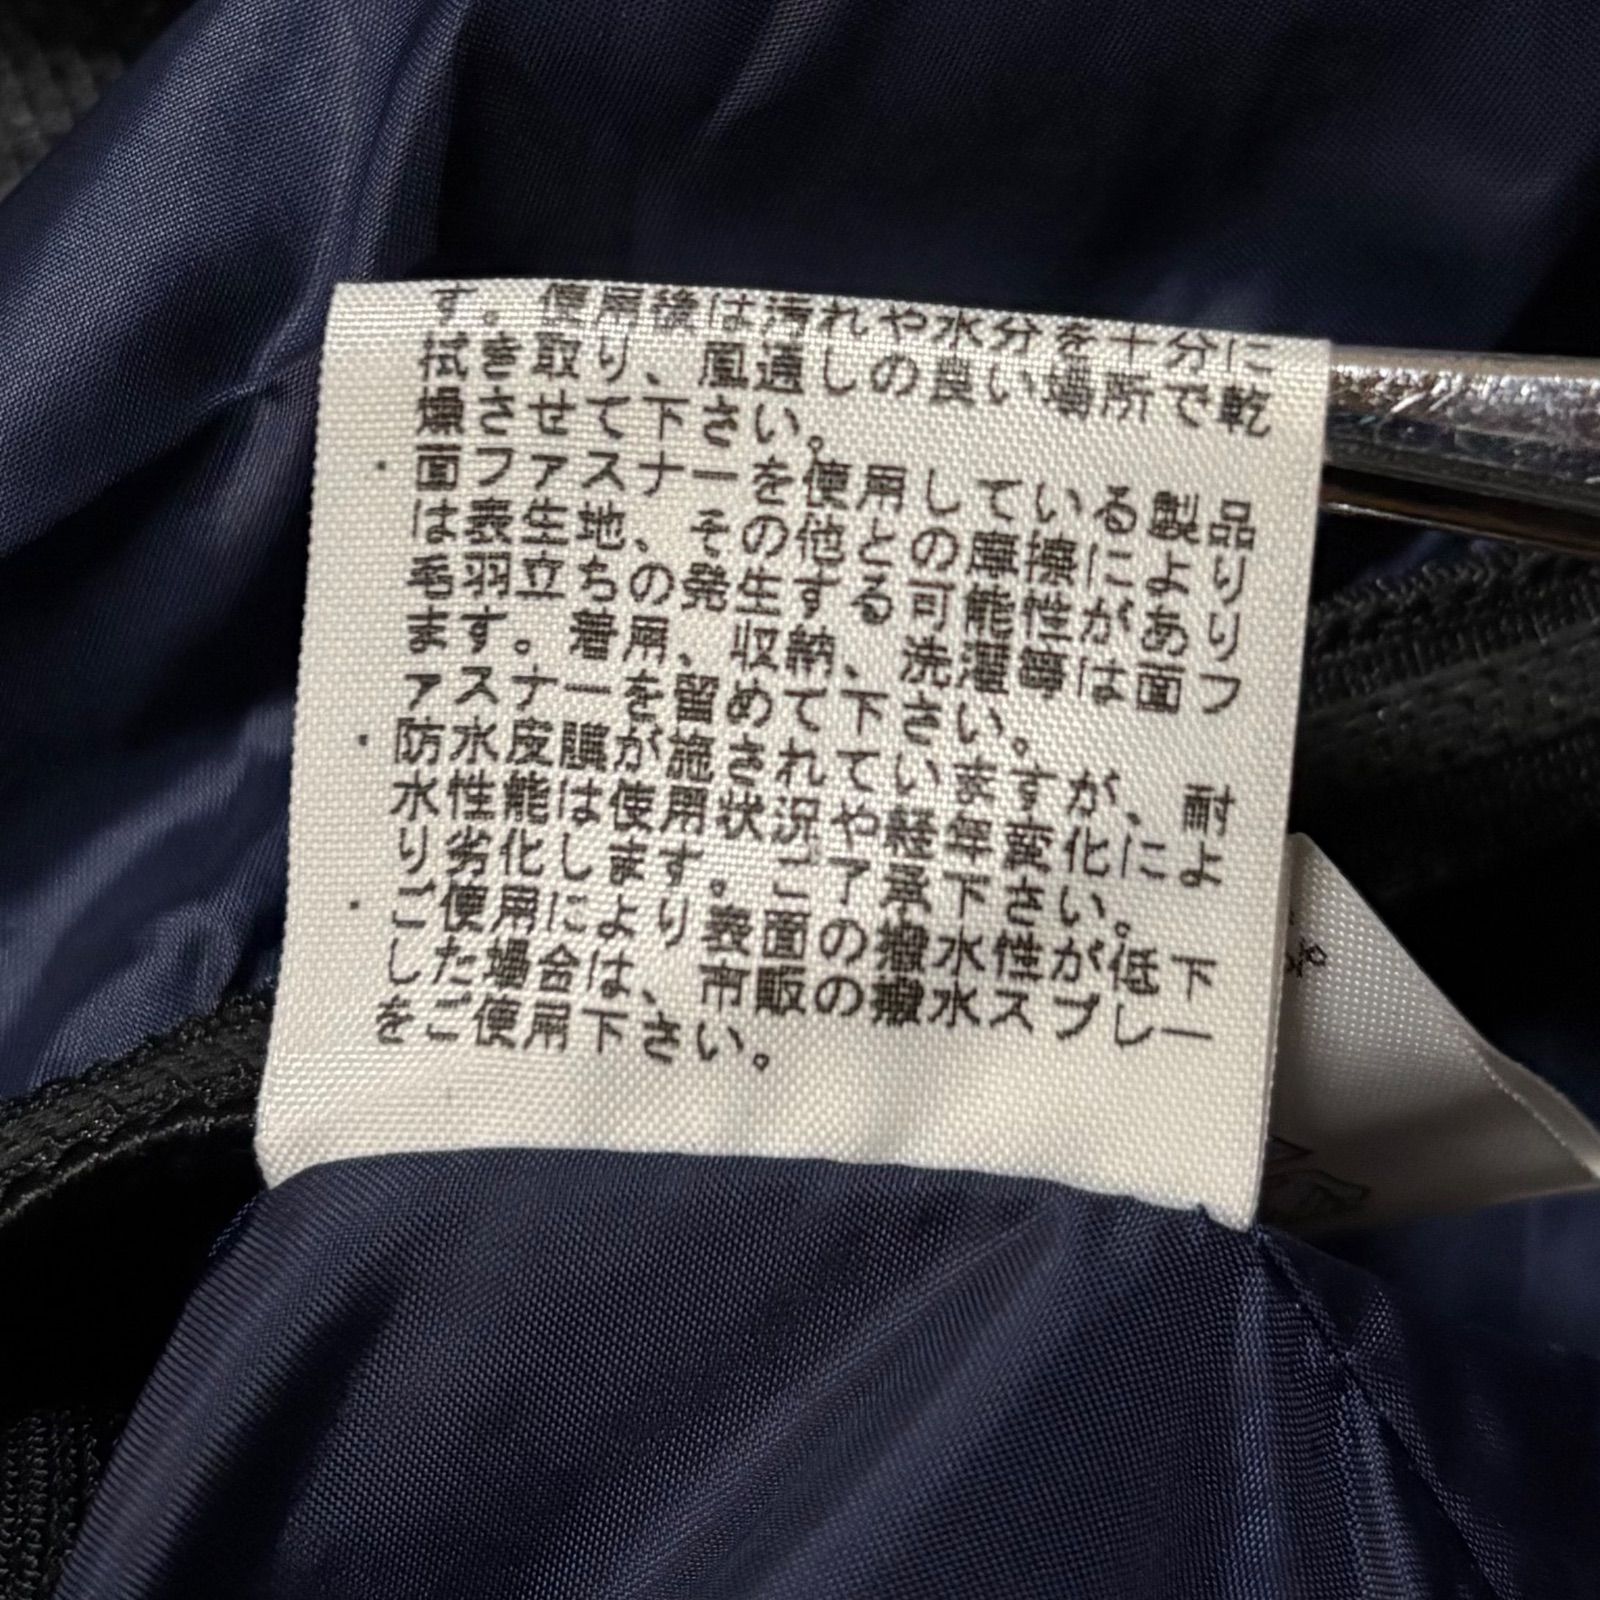 す。使用後は汚れや水分を十分に
拭き取り、風通しの良い場所で乾
燥させて下さい。
・面ファスナーを使用している製品
は表生地、その他との摩擦により
毛羽立ちの発生する可能性があり
ます。着用、収納、洗濯等は面フ
ァスナーを留めて下さい。
・防水皮膜が施されていますが、耐
水性能は使用状況や経年変化によ
り劣化します。ご了承下さい。
・ご使用により表面の撥水性が低下
した場合は、市販の撥水スプレー
をご使用下さい。